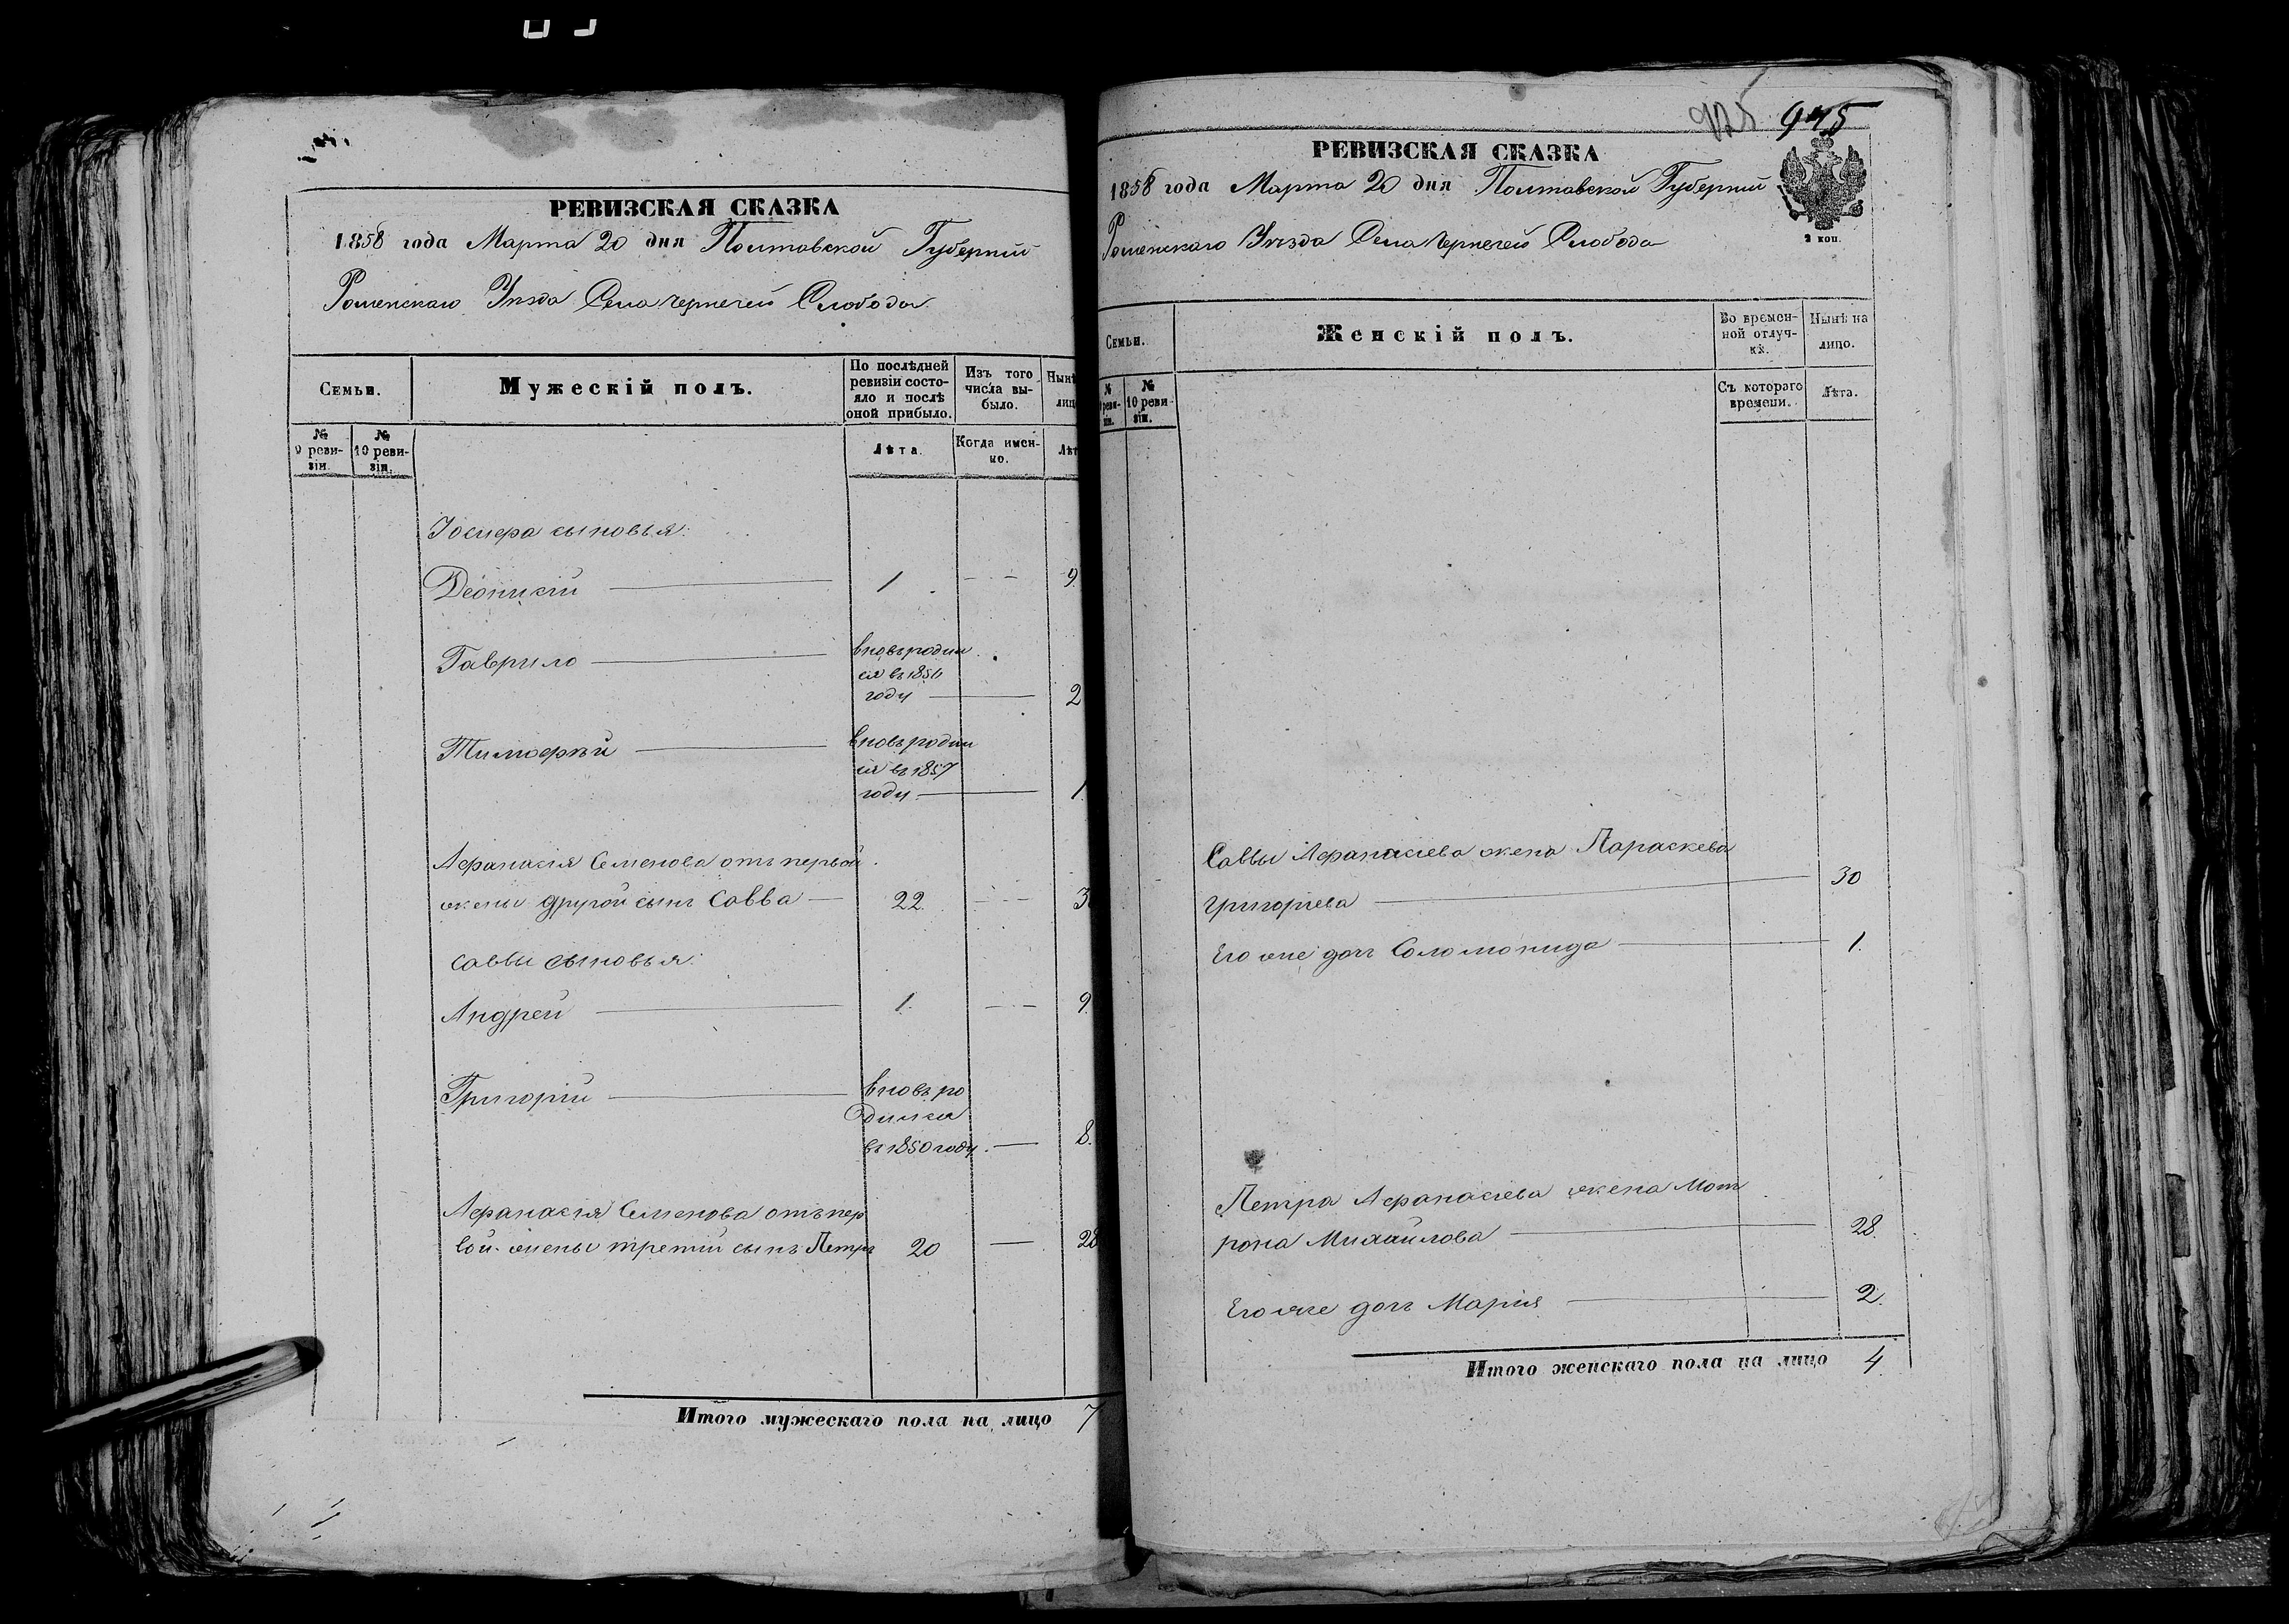 РЕВИЗСКАЯ СКАЗКА
1858 года Марта 20 дня Полтавской Губерніи
Роменскаго Уѣзда Села Чернечей Слободы
Семьи.
Мужескій полъ.
По послѣдней
ревизіи состо-
яло и послѣ
оной прибыло.
Изъ того
числа вы-
было.
Нынѣ
лиц
№
9 реви-
зіи.
№
10 реви-
зіи.
Лѣта.
Когда имен-
но.
Лѣт
Іосифа сыновья:
Леонтій 1 9.
Гаврило
вновь родил
ся въ 1856
году 2
Тимофѣй
вновь родил
ся въ 1857
году 1.
Афанасія Семенова отъ первой
жены другой сынъ Савва 22. 3
Саввы сыновья:
Андрей 1. 9.
Григорій
вновь ро
дился
въ 1850 году. 8.
Афанасія Семенова отъ пер
вой жены третій сынъ Петръ 20 28
Итого мужескаго пола на лицо 7
925 945
РЕВИЗСКАЯ СКАЗКА
1858 года Марта 20 дня Полтавской Губерніи
Роменскаго Уѣзда Села Чернечей Слободы
2 коп.
Семьи.
Женскій полъ.
Во времен-
ной отлуч-
кѣ.
Нынѣ на
лицо.
№
9 реви-
зіи.
№
10 реви-
зіи.
Съ котораго
времени.
Лѣта.
Саввы Афанасіева жена Параскева
Григоріева 30
Его же дочь Соломонида 1.
Петра Афанасіева жена Мот
рона Михайлова 28.
Его же дочь Марія 2.
Итого женскаго пола на лицо 4.